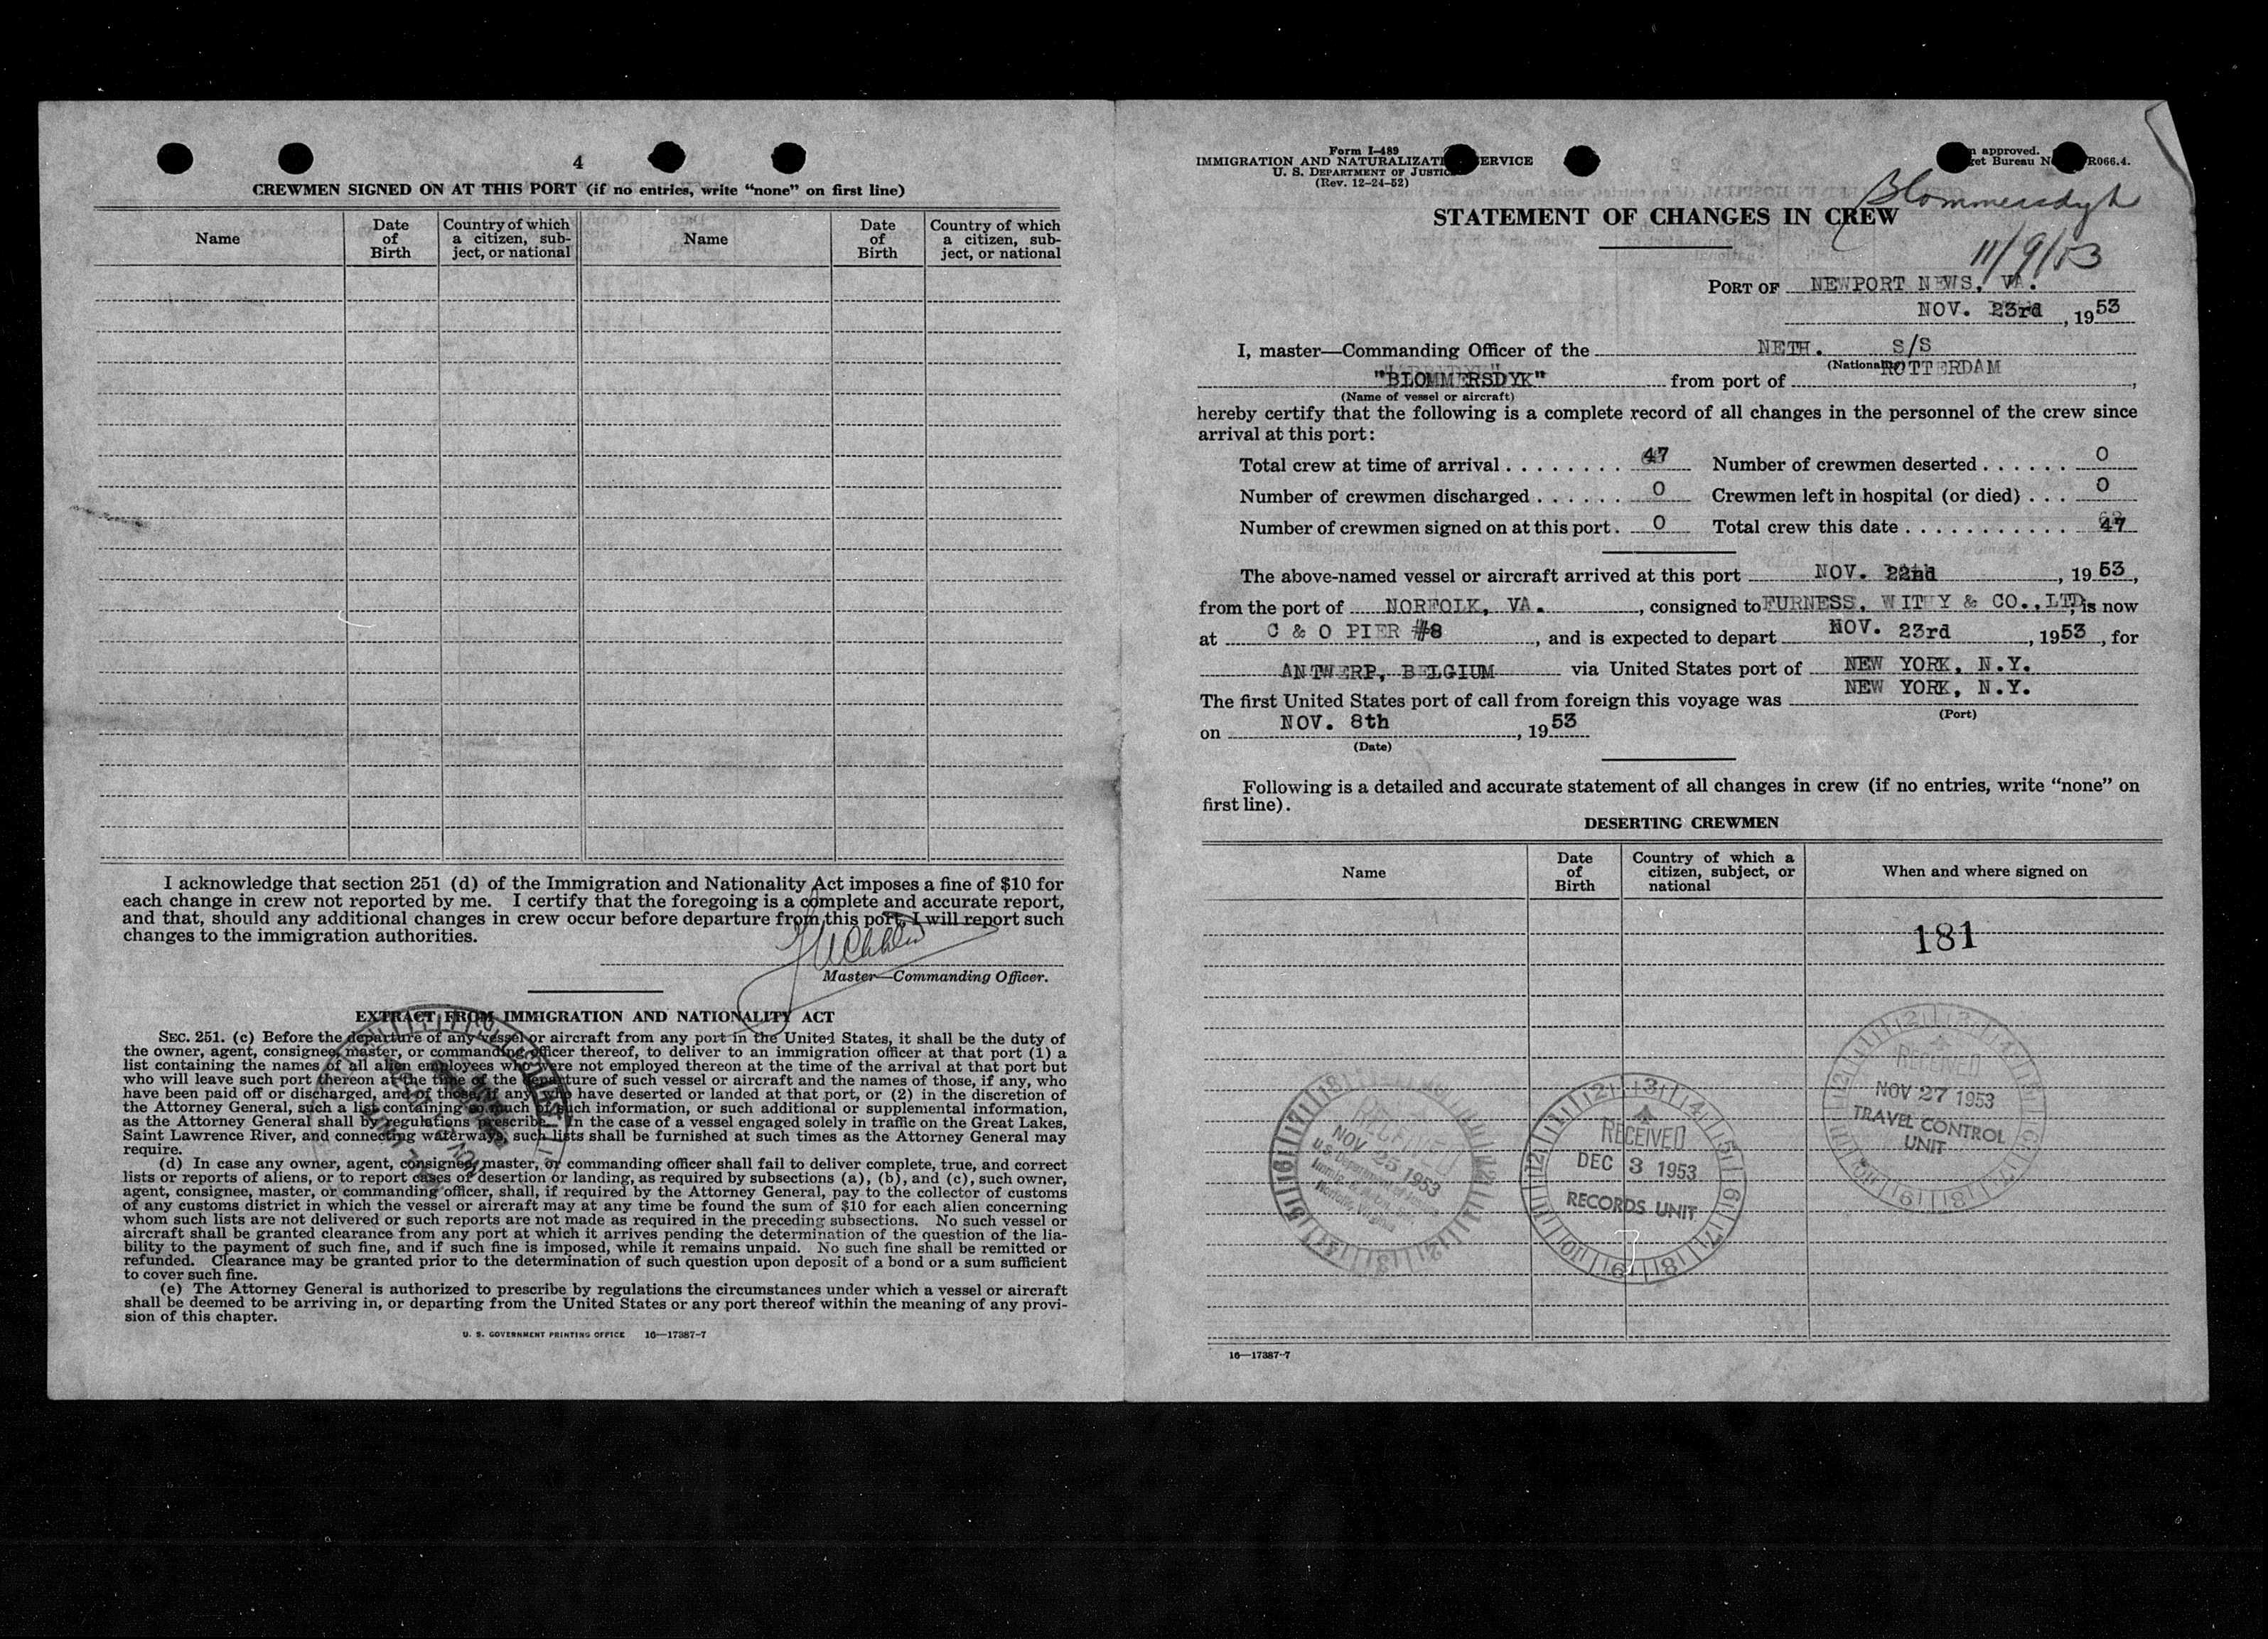 4
CREWMEN SIGNED ON AT THIS PORT (if no entries, write "none" on first line)
Name
Date of Birth
Country of which a citizen, sub-ject, or national
Name
Date of Birth
Country of which a citizen, sub-ject, or national
I acknowledge that section 251 (d) of the Immigration and Nationality Act imposes a fine of $10 for
each change in crew not reported by me. I certify that the foregoing is a complete and accurate report,
and that, should any additional changes in crew occur before departure from this port, I will report such
changes to the immigration authorities.
Master—Commanding Officer.
EXTRACT FROM IMMIGRATION AND NATIONALITY ACT
SEC. 251. (c) Before the departure of any vessel or aircraft from any port in the United States, it shall be the duty of
the owner, agent, consignee, master, or commanding officer thereof, to deliver to an immigration officer at that port (1) a
list containing the names of all alien employees who were not employed thereon at the time of the arrival at that port but
who will leave such port thereon at the time of the departure of such vessel or aircraft and the names of those, if any, who
have been paid off or discharged, and of those, if any, who have deserted or landed at that port, or (2) in the discretion of
the Attorney General, such a list containing so much of such information, or such additional or supplemental information,
as the Attorney General shall by regulations prescribe. In the case of a vessel engaged solely in traffic on the Great Lakes,
Saint Lawrence River, and connecting waterways, such lists shall be furnished at such times as the Attorney General may
require.
(d) In case any owner, agent, consignee, master, or commanding officer shall fail to deliver complete, true, and correct
lists or reports of aliens, or to report cases of desertion or landing, as required by subsections (a), (b), and (c), such owner,
agent, consignee, master, or commanding officer, shall, if required by the Attorney General, pay to the collector of customs
of any customs district in which the vessel or aircraft may at any time be found the sum of $10 for each alien concerning
whom such lists are not delivered or such reports are not made as required in the preceding subsections. No such vessel or
aircraft shall be granted clearance from any port at which it arrives pending the determination of the question of the lia-
bility to the payment of such fine, and if such fine is imposed, while it remains unpaid. No such fine shall be remitted or
refunded. Clearance may be granted prior to the determination of such question upon deposit of a bond or a sum sufficient
to cover such fine.
(e) The Attorney General is authorized to prescribe by regulations the circumstances under which a vessel or aircraft
shall be deemed to be arriving in, or departing from the United States or any port thereof within the meaning of any provi-
sion of this chapter.
U. S. GOVERNMENT PRINTING OFFICE 16—17387-7
Form I-489
IMMIGRATION AND NATURALIZATI ERVICE
U. S. DEPARTMENT OF JUSTIC
(Rev. 12-24-52)
approved.
et Bureau N R066.4.
Blommersdyk
STATEMENT OF CHANGES IN CREW
11/9/53
PORT OF NEWPORT NEWS, VA.
NOV. 23rd, 1953
I, master—Commanding Officer of the NETH. S/S
(Nationality)
"BLOMMERSDYK" from port of ROTTERDAM,
(Name of vessel or aircraft)
hereby certify that the following is a complete record of all changes in the personnel of the crew since
arrival at this port:
Total crew at time of arrival . . . . . . . . 47 Number of crewmen deserted . . . . . . 0
Number of crewmen discharged . . . . . . 0 Crewmen left in hospital (or died) . . . 0
Number of crewmen signed on at this port . 0 Total crew this date . . . . . . . . . . . 47
The above-named vessel or aircraft arrived at this port NOV. 22nd, 1953,
from the port of NORFOLK, VA., consigned to FURNESS, WITHY & CO., LTD, is now
at C & O PIER #8, and is expected to depart NOV. 23rd, 1953, for
ANTWERP, BELGIUM via United States port of NEW YORK, N.Y.
The first United States port of call from foreign this voyage was NEW YORK, N.Y.
(Port)
on NOV. 8th, 1953
(Date)
Following is a detailed and accurate statement of all changes in crew (if no entries, write "none" on
first line).
DESERTING CREWMEN
Name
Date of Birth
Country of which a citizen, subject, or national
When and where signed on
181
RECEIVED
NOV 25 1953
U.S. Department of Justice
Norfolk, Virginia
RECEIVED
DEC 3 1953
RECORDS UNIT
RECEIVED
NOV 27 1953
TRAVEL CONTROL
UNIT
16—17387-7